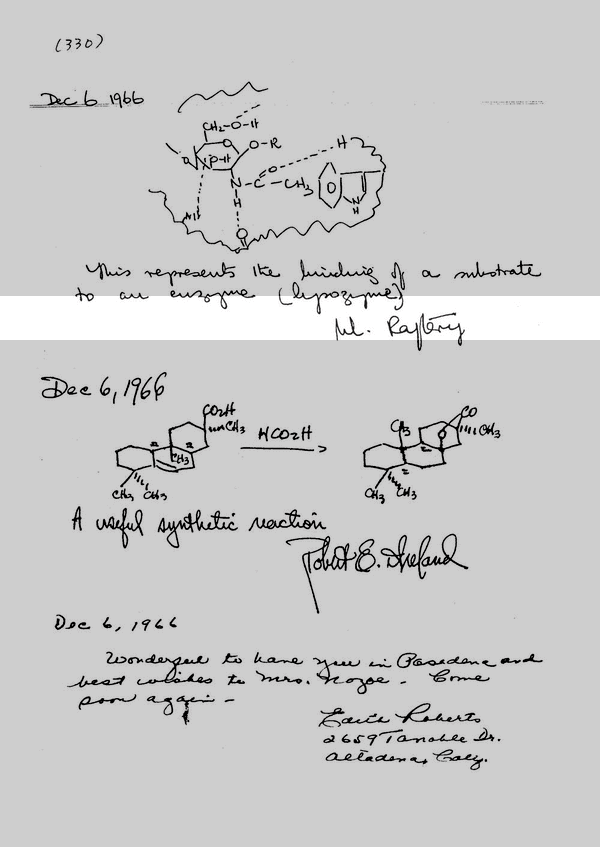 (330)
Dec 6 1966
CH2-O-H
O
O-H
O-R
O
N-C-CH3
O
H
H
N
H
O
This represents the binding of a substrate
to an enzyme (lysozyme)
M. Raftery
Dec 6, 1966
CO2H
CH3
CH3
CH3 CH3
HCO2H
CO
O
CH3
CH3
CH3 CH3
A useful synthetic reaction
Robert E. Ireland
Dec 6, 1966
Wonderful to have you in Pasadena and
best wishes to Mrs. Nozoe - Come
soon again -
Edith Roberts
2659 Tanoble Dr.
Altadena, Calif.